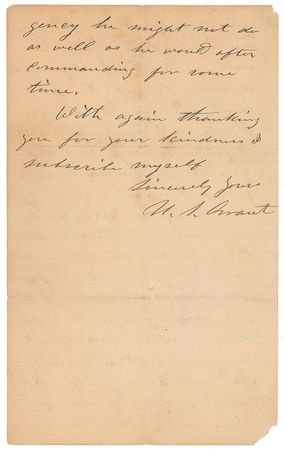 gency he might not do
as well as he would after
commanding for some
time.
With again thanking
you for your kindness I
subscribe myself
Sincerely yours
U. S. Grant